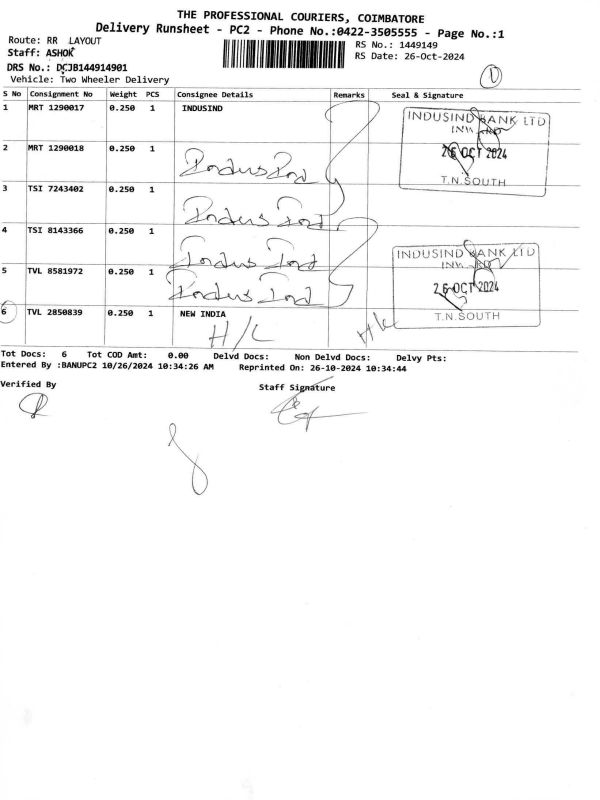 THE PROFESSIONAL COURIERS, COIMBATORE
Delivery Runsheet - PC2 - Phone No.:0422-3505555 - Page No.:1
Route: RR LAYOUT
RS No.: 1449149
Staff: ASHOK
RS Date: 26-Oct-2024
DRS No.: DCJB144914901
1
Vehicle: Two Wheeler Delivery
S No Consignment No Weight PCS Consignee Details Remarks Seal & Signature
1 MRT 1290017 0.250 1 INDUSIND
INDUSIND BANK LTD
INWARD
26 OCT 2024
T.N.SOUTH
2 MRT 1290018 0.250 1 Indus Ind
3 TSI 7243402 0.250 1 Indus Ind
4 TSI 8143366 0.250 1 Indus Ind
INDUSIND BANK LTD
INWARD
26 OCT 2024
T.N.SOUTH
5 TVL 8581972 0.250 1 Indus Ind
6 TVL 2850839 0.250 1 NEW INDIA
H/L
Tot Docs: 6 Tot COD Amt: 0.00 Delvd Docs: Non Delvd Docs: Delvy Pts:
Entered By :BANUPC2 10/26/2024 10:34:26 AM Reprinted On: 26-10-2024 10:34:44
Verified By
Staff Signature